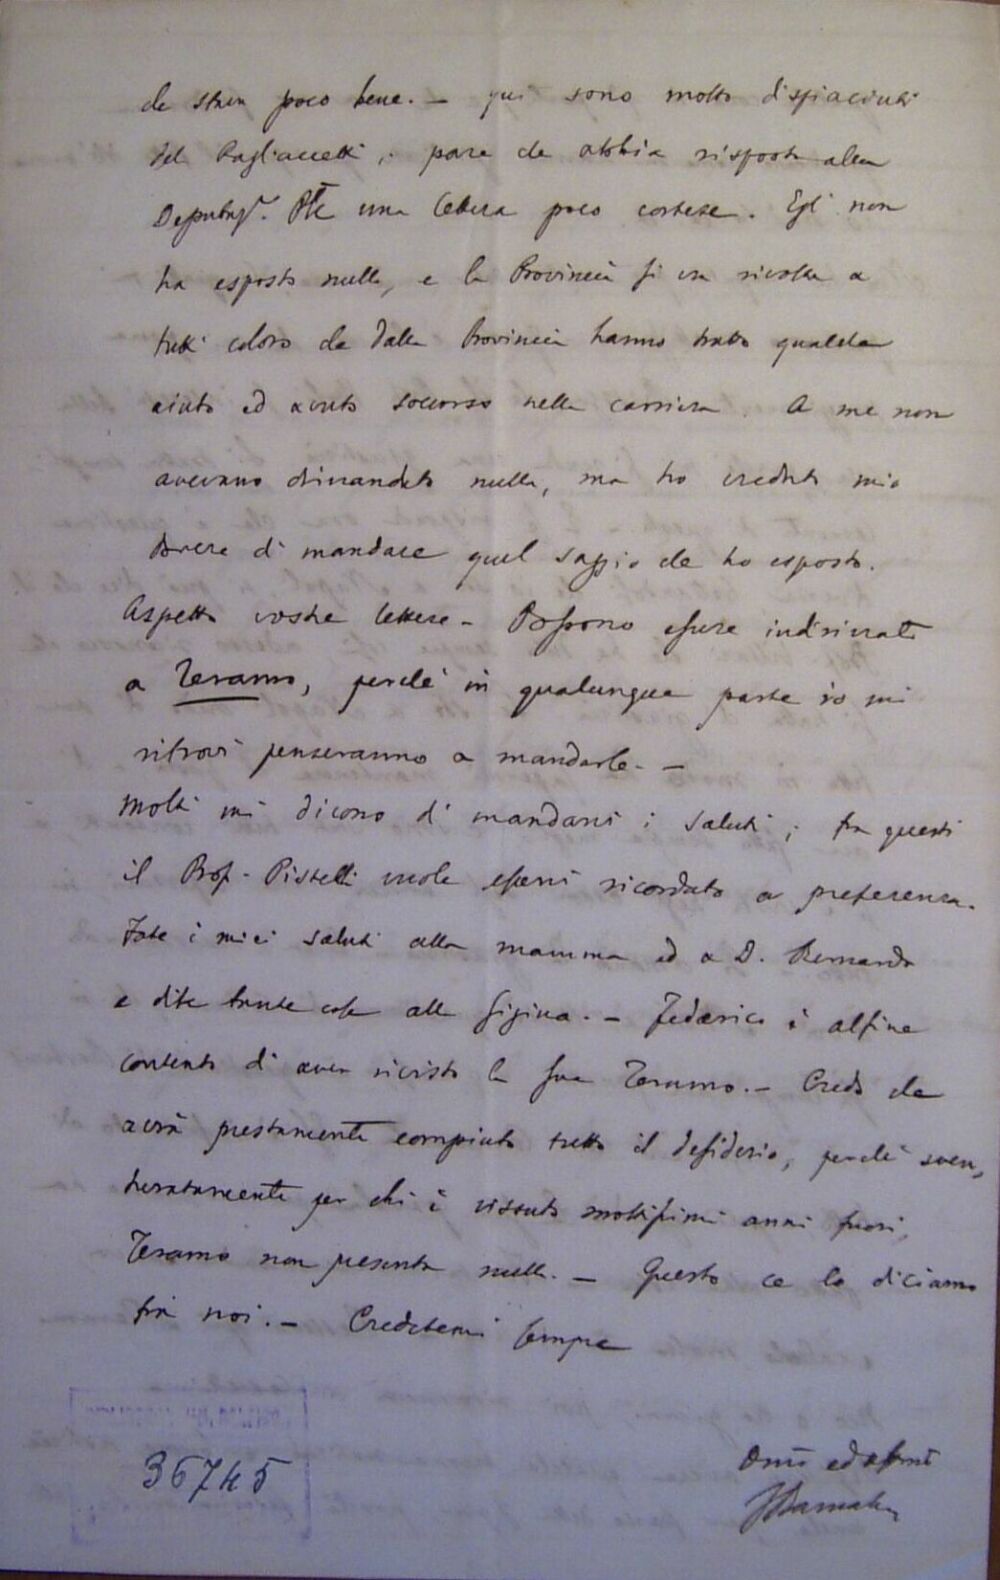 che stia poco bene. – Qui sono molto dispiaciuti
del Pagliaccetti, pare che abbia risposto alla
Deputazᵉ. Ple una lettera poco cortese. Egli non
ha esposto nulla, e la Provincia si era rivolta a
tutti coloro che dalla Provincia hanno tratto qualche
aiuto ed avuto soccorso nella carriera. A me non
avevano dimandato nulla, ma ho creduto mio
dovere di mandare quel saggio che ho esposto.
Aspetto vostre lettere – Possono essere indirizzate
a Teramo, perchè in qualunque parte io mi
ritrovi penseranno a mandarle. –
Molti mi dicono di mandarvi i saluti; fra questi
il Prof. Pistelli vuole esservi ricordato a preferenza.
Fate i miei saluti alla mamma ed a D. Bernardo
e dite tante cose alla Gigina. – Federico è alfine
contento di aver rivisto la sua Teramo. – Credo che
avrà prestamente compiuto tutto il desiderio, perchè sven,
turatamente per chi è vissuto moltissimi anni fuori,
Teramo non presenta nulla. – Questo ce lo diciamo
fra noi. – Credetemi sempre
36745
Dmo ed affmo